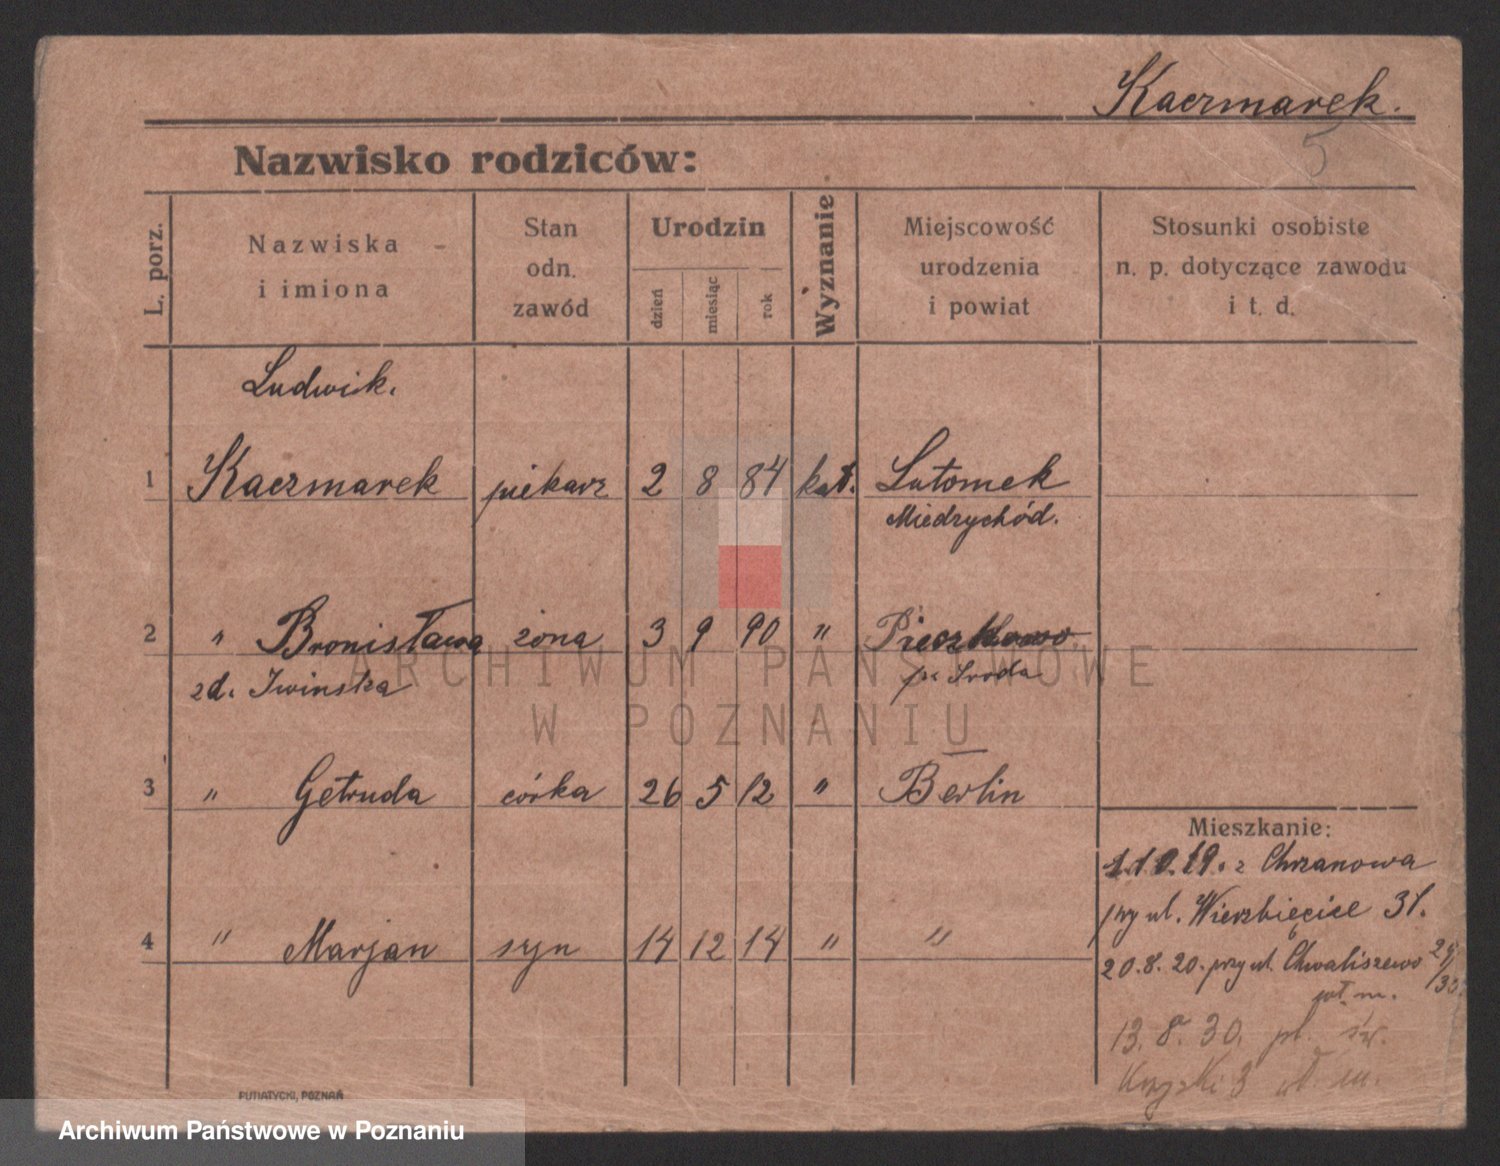 Kaczmarek.
5
Nazwisko rodziców:
L. porz.
Nazwiska
i imiona
Stan
odn.
zawód
Urodzin
dzień
miesiąc
rok
Wyznanie
Miejscowość
urodzenia
i powiat
Stosunki osobiste
n. p. dotyczące zawodu
i t. d.
Ludwik.
1 Kaczmarek piekarz 2 8 84 kat. Lutomek
Miedzychód.
2 " Bronisława żona 3 9 90 "
zd. Iwinska Sroda
ARCHIWUM PAŃSTWOWE
W POZNANIU
3 " Getruda córka 26 5 12 " Berlin
Mieszkanie:
1.10.19. z Chrzanowa
przy ul. Wierzbięcice 31.
4 " Marjan syn 14 12 14 " "
20.8.20. przy ul. Chwaliszewo
wł. m.
13.8.30. pl. św.
Krzyski 3 wł. m.
PUTIATYCKI, POZNAŃ
Archiwum Państwowe w Poznaniu